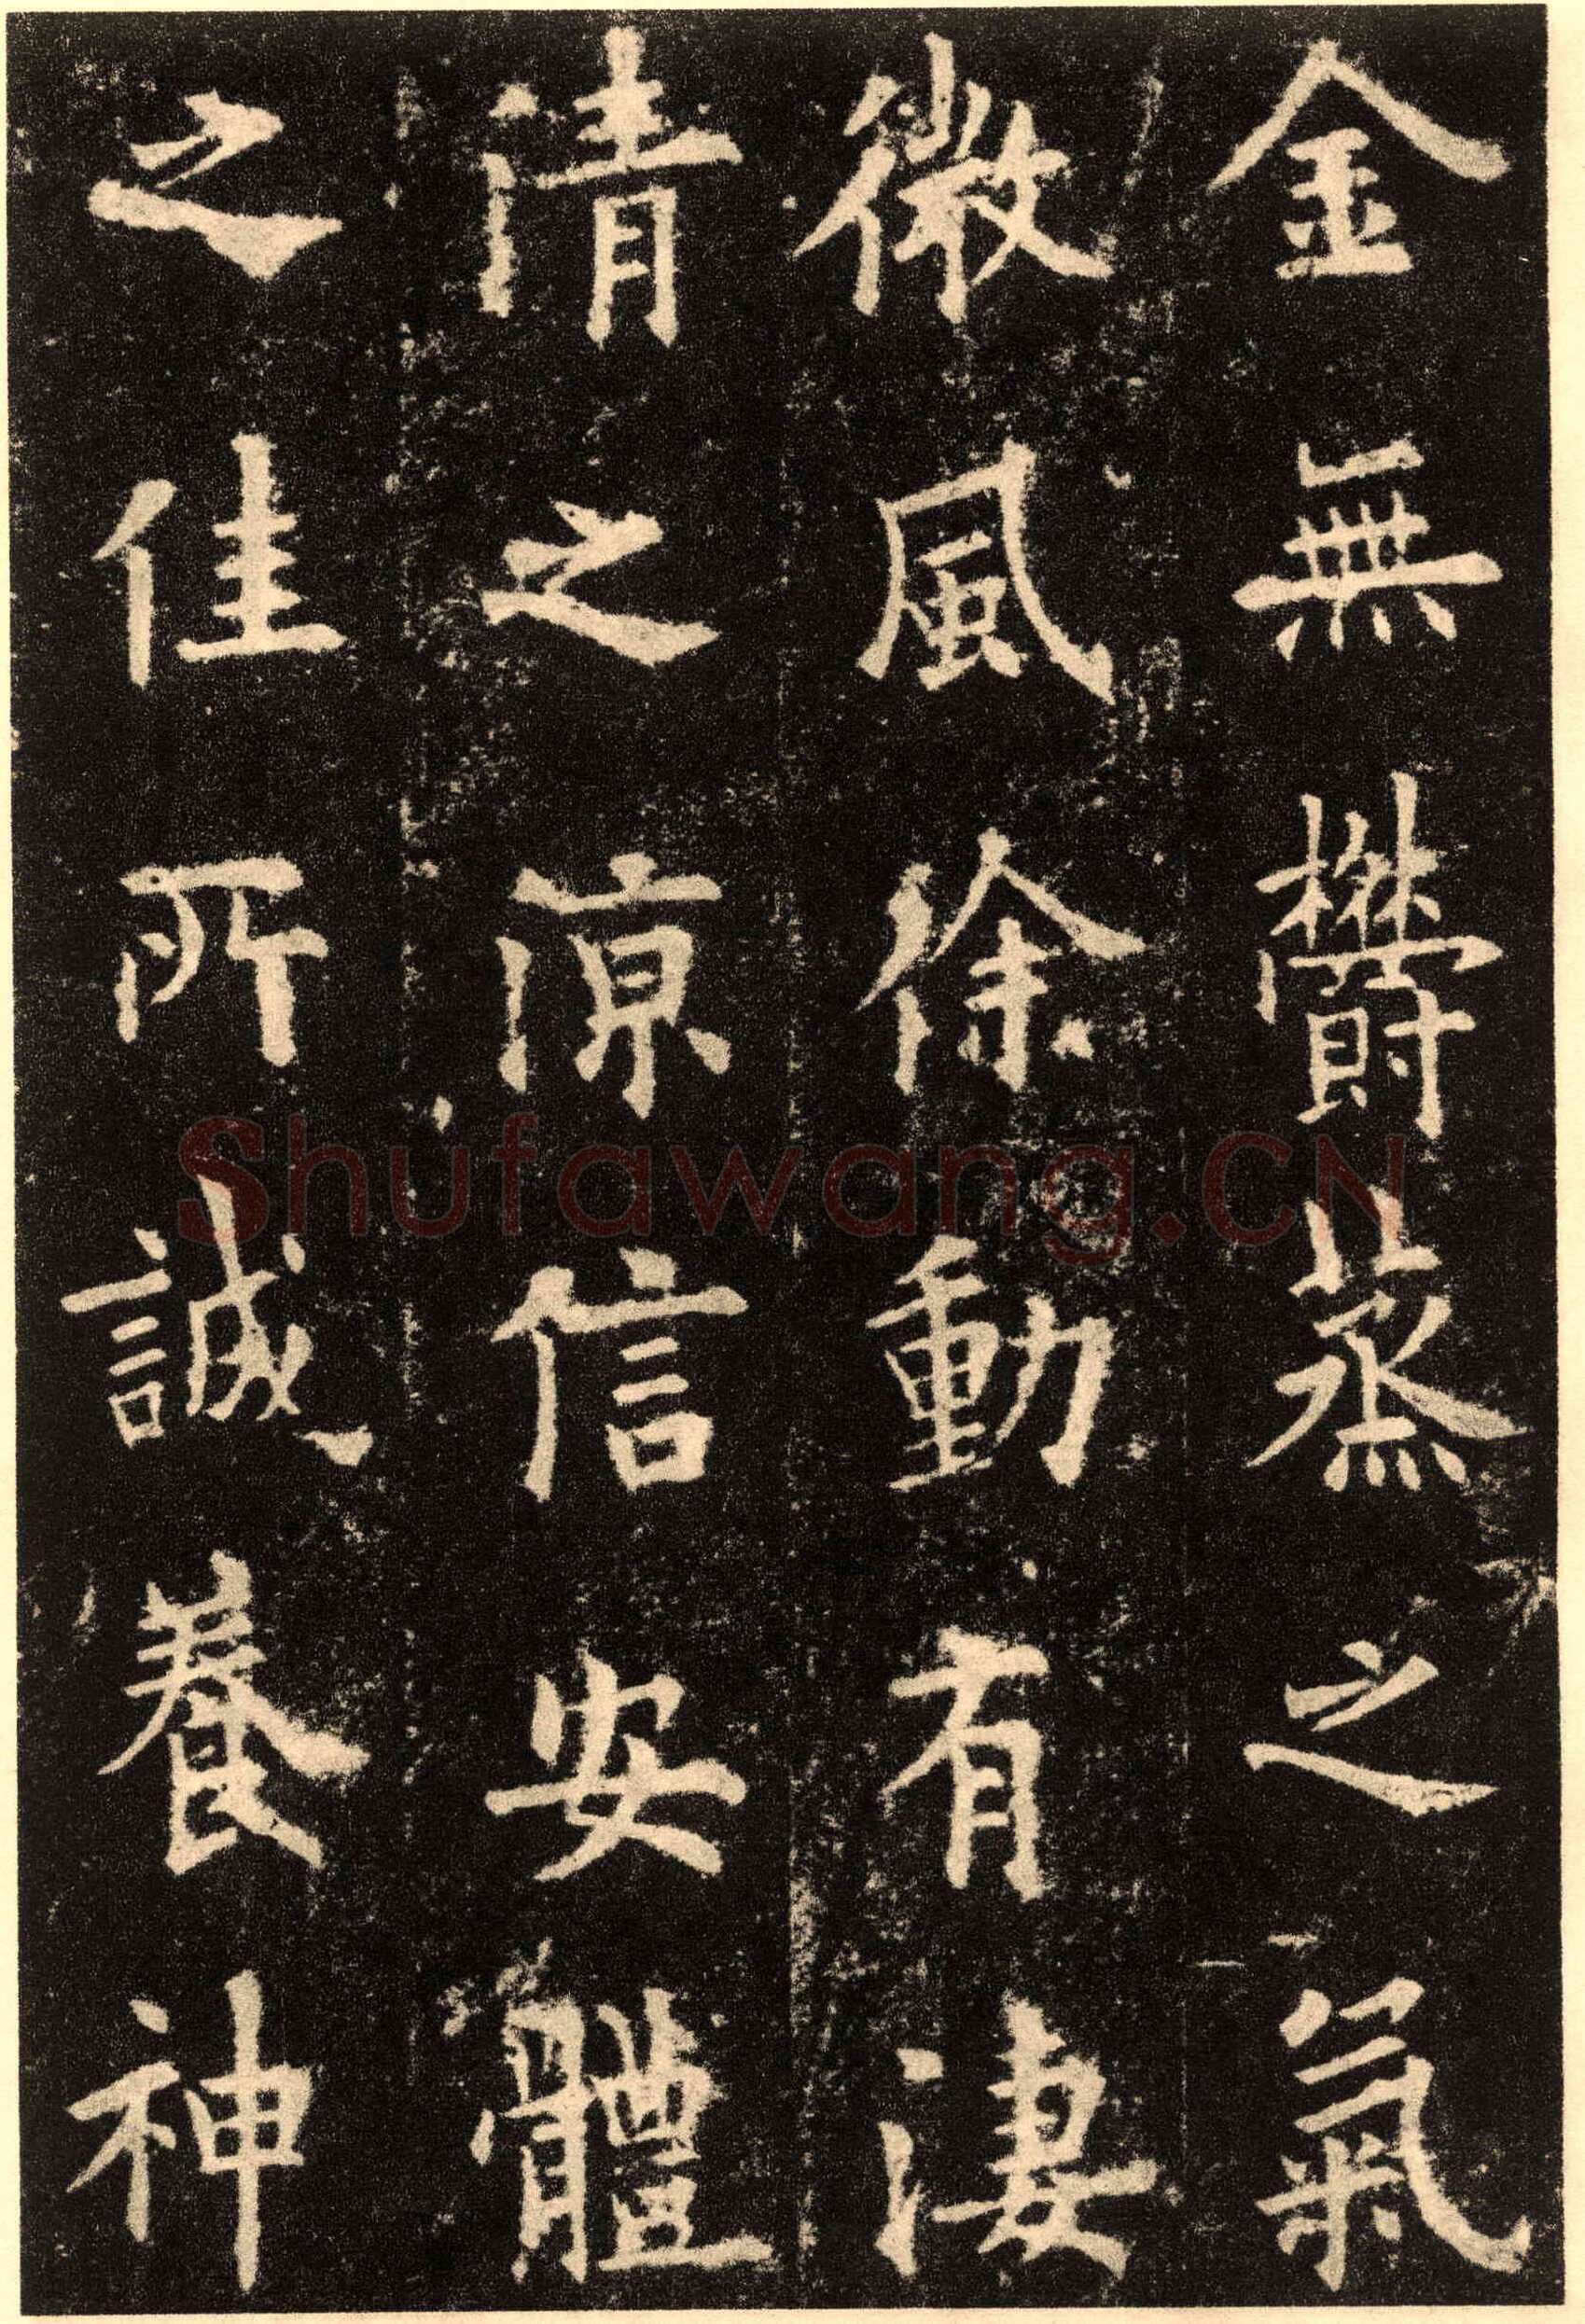 金無欝蒸之氣
微風徐動有凄
清之涼信安體
之佳所誠養神
Shufawang.CN